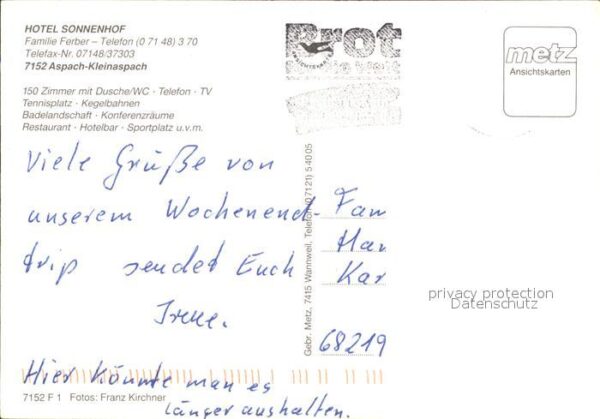 HOTEL SONNENHOF
Familie Ferber – Telefon (0 71 48) 3 70
Telefax-Nr. 07148/37303
7152 Aspach-Kleinaspach
150 Zimmer mit Dusche/WC · Telefon · TV
Tennisplatz · Kegelbahnen
Badelandschaft · Konferenzräume
Restaurant · Hotelbar · Sportplatz u.v.m.
Brot
Welt
metz
Ansichtskarten
Viele Grüße von
unserem Wochenend-
trip sendet Euch
Irene.
Hier könnte man es
länger aushalten.
Gebr. Metz, 7415 Wannweil, Telefon (0 71 21) 5 40 05
Fam
Han
Kar
68219
privacy protection
Datenschutz
7152 F 1 Fotos: Franz Kirchner